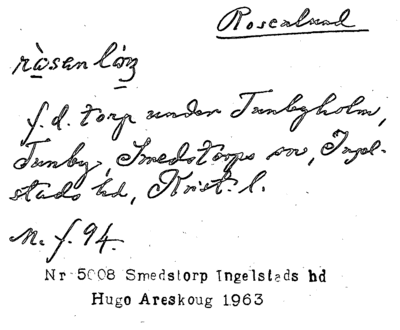 Rosenlund
ròsenlȯnz
f.d. torp under Tunbyholm,
Tunby, Smedstorps sn, Ingel-
stads hd, Krist. l.
M. f. 94.
Nr 5008 Smedstorp Ingelstads hd
Hugo Areskoug 1963